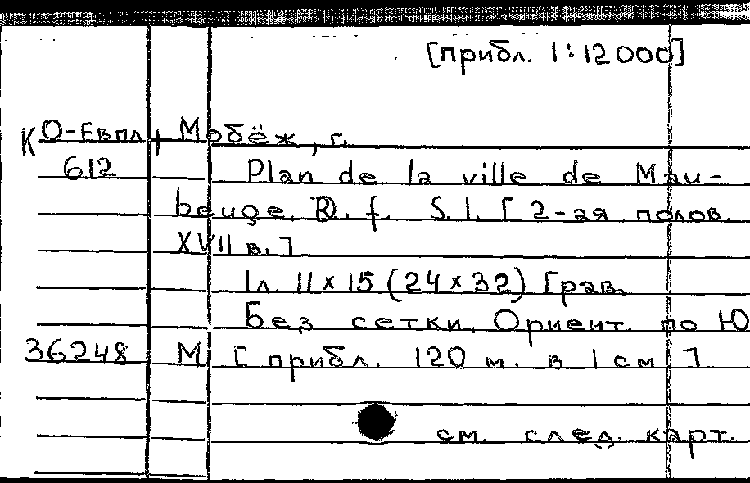 [прибл. 1:12 000]
К О-Евпл Мобёж, г.
6.12 Plan de la ville de Mau-
beuge. D. f. S. l. [2-ая полов.
XVII в.]
1 л. 11 х 15 (24 х 32) Грав.
Без сетки. Ориент. по Ю
36248 М [прибл. 120 м. в 1 см]
см. след. карт.